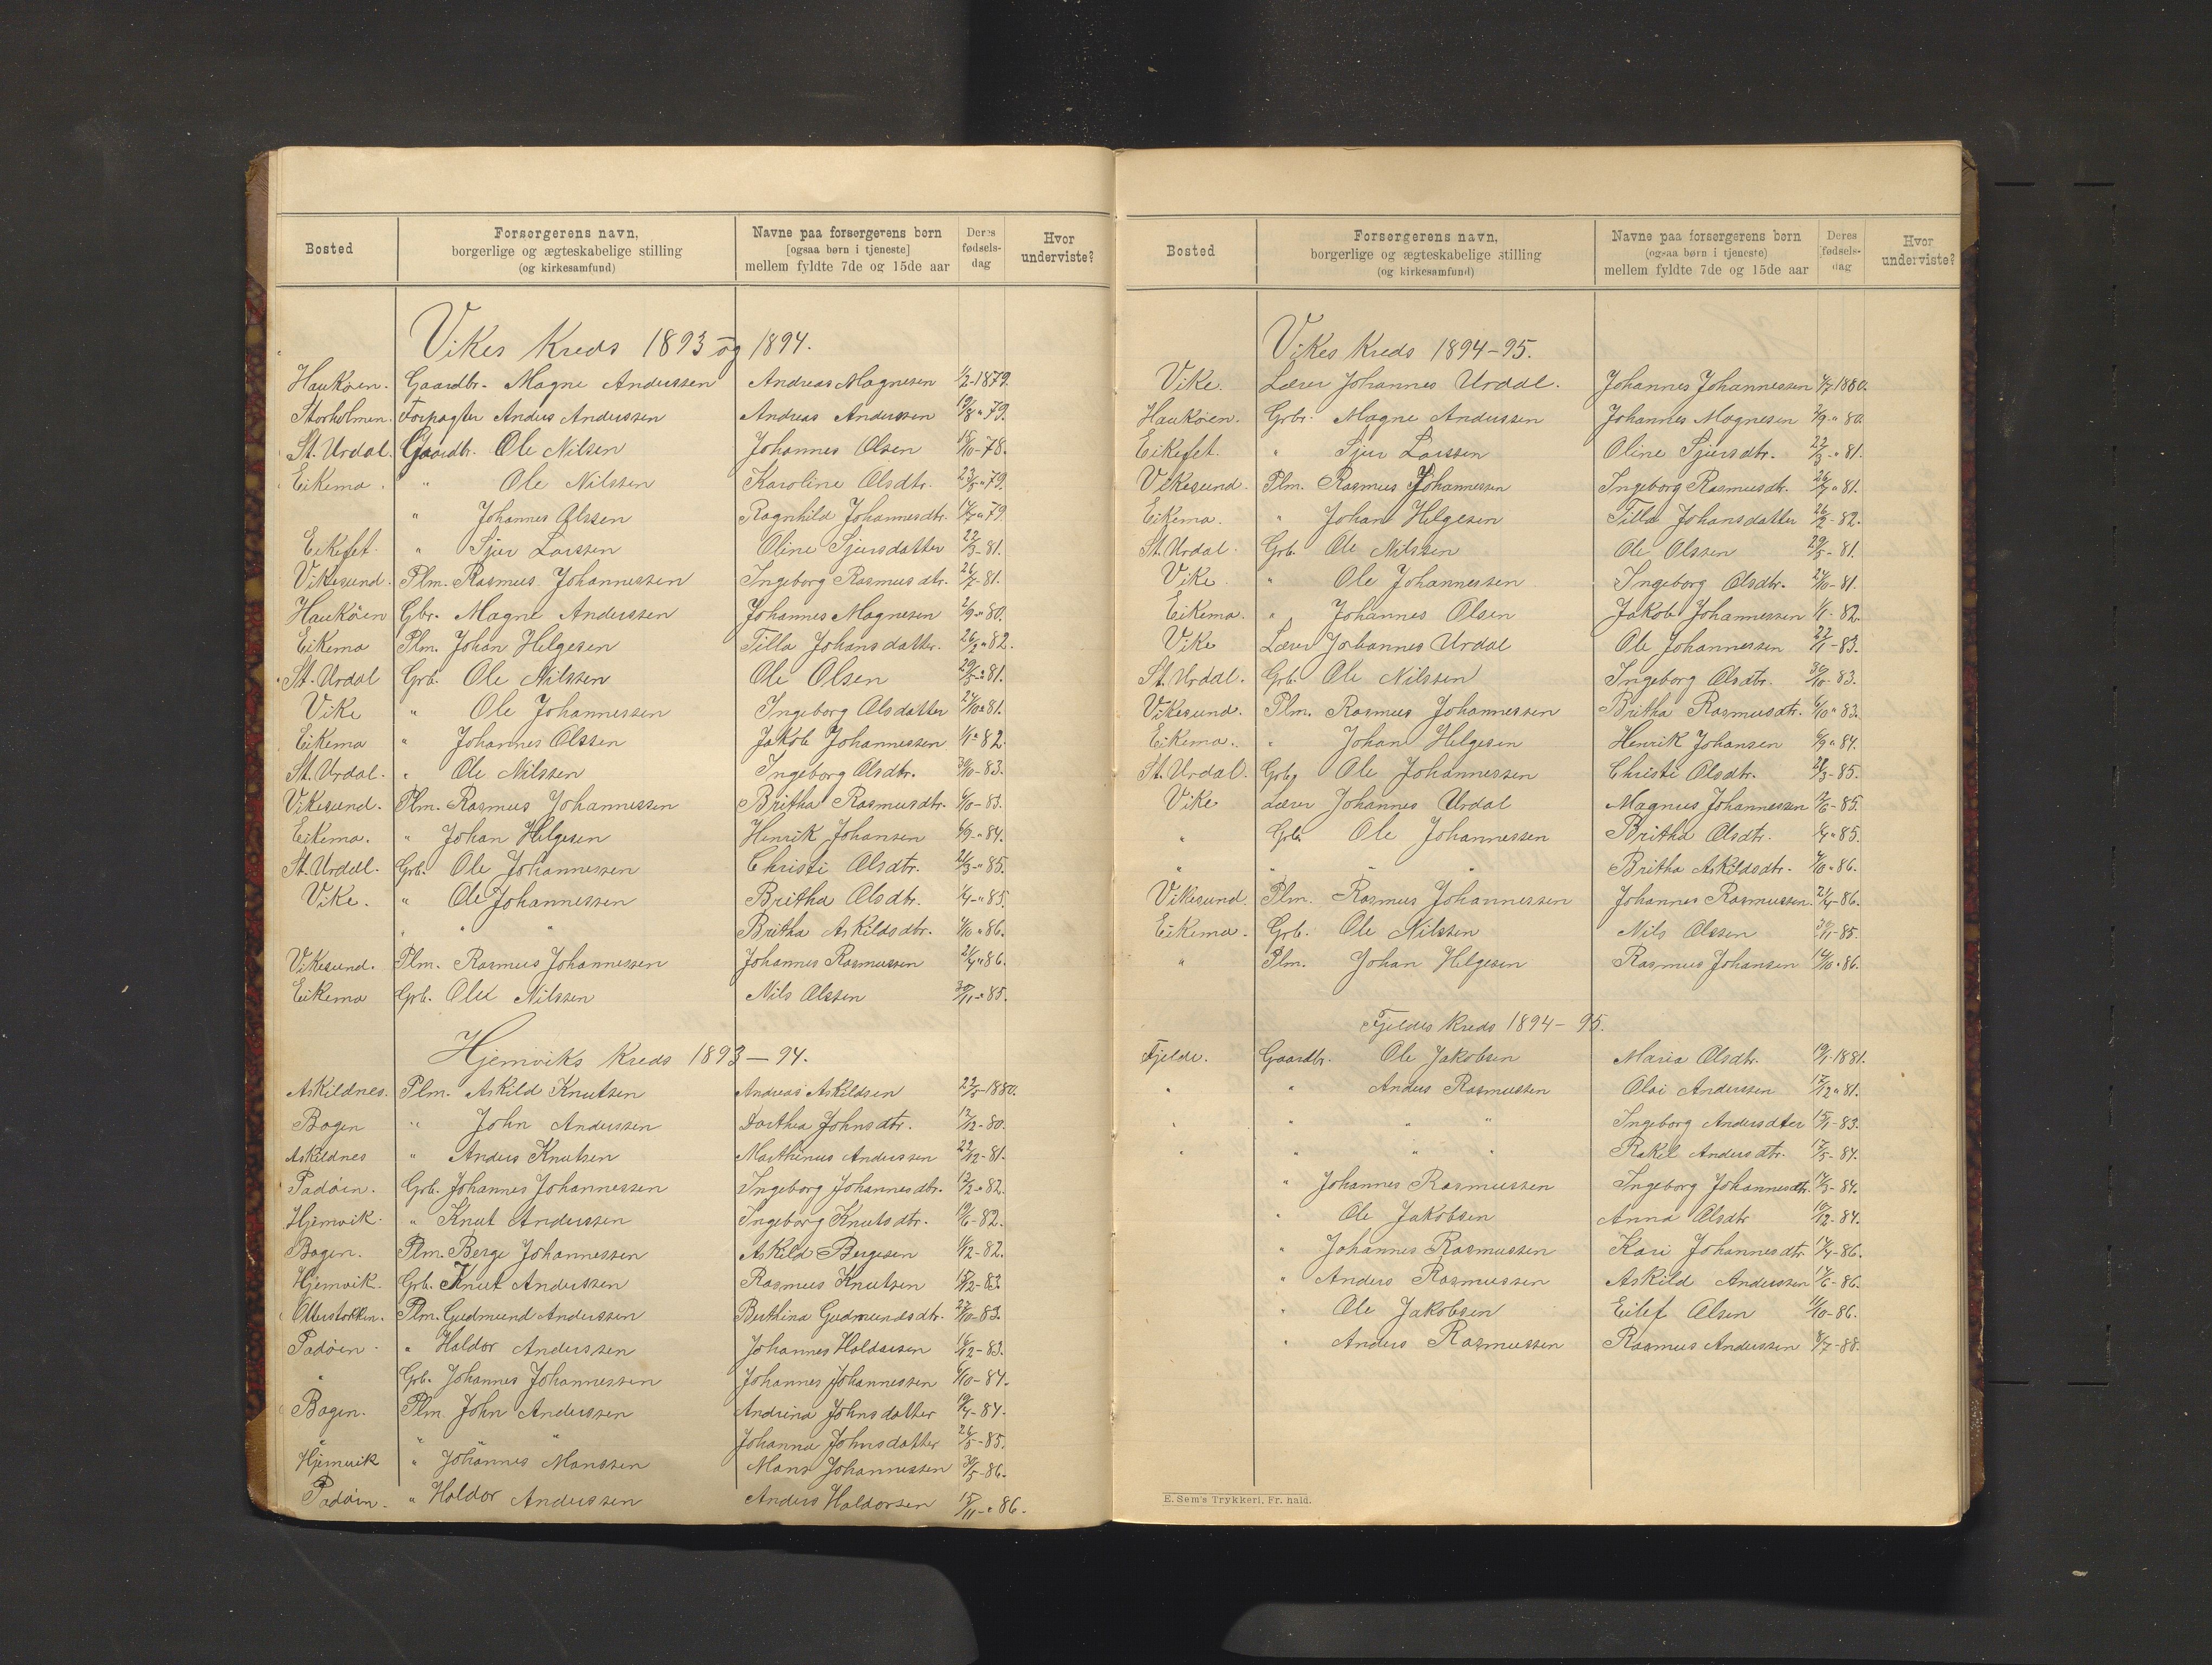 Bosted
Forsørgerens navn,
borgerlige og ægteskabelige stilling
(og kirkesamfund)
Navne paa forsørgerens børn
[ogsaa børn i tjeneste]
mellem fyldte 7de og 15de aar
Deres
fødsels-
dag
Hvor
underviste?
Vikes Kreds 1893 og 1894.
Haukøen. Gaardbr. Magne Anderssen Andreas Magnesen 1/2-1879.
Storholmen. Forpagter Anders Anderssen Andreas Anderssen 19/8 " 79.
St. Urdal. Gaardbr. Ole Nilsen Johannes Olsen /10-78.
Eikemo. " Ole Nilssen Karoline Olsdtr. 23/5 " 79.
" Johannes Olssen Ragnhild Johannesdtr. " 79
Eikefet. " Sjur Larssen Oline Sjursdatter 22/3-81.
Vikesund. Plm. Rasmus Johannessen Ingeborg Rasmusdtr. 26/7-81.
Haukøen Gbr. Magne Anderssen Johannes Magnesen 2/9 " 80.
Eikemo Plm. Johan Helgesen Tilla Johansdatter. 26/2 " 82.
St. Urdal Grb. Ole Nilssen Ole Olsen 29/5-"81.
Vike " Ole Johannessen Ingeborg Olsdatter 24/10 " 81.
Eikemo " Johannes Olssen Jakob Johannessen 1/1 " 82.
St. Urdal. " Ole Nilssen Ingeborg Olsdtr. 30/10-83.
Vikesund. Plm. Rasmus Johannessen Britha Rasmusdtr. 6/10-83.
Eikemo. " Johan Helgesen Henrik Johansen 6/9 " 84.
St. Urdal. Grb. Ole Johannessen Christi Olsdtr. 21/3-"85.
Vike. " Ole Johannessen Britha Olsdtr. -"85.
" " " Britha Askildsdtr. /10 " 86.
Vikesund. Plm. Rasmus Johannessen Johannes Rasmussen 21/4 " 86.
Eikemo Grb. Ole Nilssen Nils Olssen 30/11-"85.
Hjemviks Kreds 1893-94.
Askildnes. Plm. Askild Knutsen Andreas Askildsen 22/5-1880.
Bogen " John Anderssen Dorthea Johnsdtr. 12/12-80.
Askildnes " Anders Knutsen Marthinus Anderssen 22/12-81.
Padøen. Grb. Johannes Johannessen Ingeborg Johannesdtr. 12/2-"82.
Hjemvik. " Knut Anderssen Ingeborg Knutsdtr. 19/6-82.
Bogen. Plm. Berge Johannessen Askild Bergesen 1/12-82.
Hjemvik. Grb. Knut Anderssen Rasmus Knutsen /12-83
Otterstokken. Plm. Gudmund Anderssen Berthina Gudmundsdtr. /10-83.
Padøen. " Haldor Anderssen Johannes Haldorsen /12-83.
" Grb. Johannes Johannessen Johannes Johannessen 6/10-84.
Bogen. Plm. John Anderssen Andrina Johnsdatter 19/4-84.
" " " Johanna Johnsdatter 26/5-85.
Hjemvik " Johannes Monssen Mons Johannessen 30/5-86.
Padøen. " Haldor Anderssen Anders Haldorsen 15/11-"86.
Bosted
Forsørgerens navn,
borgerlige og ægteskabelige stilling
(og kirkesamfund)
Navne paa forsørgerens børn
(ogsaa børn i tjeneste)
mellem fyldte 7de og 15de aar
Deres
fødsels-
dag
Hvor
underviste?
Vikes Kreds 1894-95.
Vike. Lærer Johannes Urdal. Johannes Johannessen 1880.
Haukøen. Grbr. Magne Anderssen Johannes Magnesen 2/9 " 80.
Eikefet. " Sjur Larssen Oline Sjursdtr. 22/3-"81.
Vikesund. Plm. Rasmus Johannessen Ingeborg Rasmusdtr. 26/7 " 81.
Eikemo. " Johan Helgesen Tilla Johansdatter 26/2-82.
St. Urdal. Grb. Ole Nilssen Ole Olssen 29/5-81.
Vike. " Ole Johannessen Ingeborg Olsdtr. 24/10-81.
Eikemo. " Johannes Olsen Jakob Johannessen 1/1-82.
Vike Lærer Johannes Urdal Ole Johannessen 22/1-83.
St. Urdal. Grb. Ole Nilssen Ingeborg Olsdtr. 30/10-83.
Vikesund. Plm. Rasmus Johannessen Britha Rasmusdtr. 6/10 " 83.
Eikemo. " Johan Helgesen Henrik Johansen 6/9 " 84.
St. Urdal. Grb. Ole Johannessen Christi Olsdtr. 21/3-85.
Vike Lærer Johannes Urdal Magnus Johannessen /6-85.
" Grb. Ole Johannessen Britha Olsdtr. " 85.
" " " " Britha Askildsdtr. /10 " 86.
Vikesund. Plm. Rasmus Johannessen Johannes Rasmussen. 21/4-86.
Eikemo. Grb. Ole Nilssen Nils Olssen 30/11-85.
" Plm. Johan Helgesen Rasmus Johansen 14/10 " 86.
Fjeldes Kreds 1894-95.
Fjelde. Gaardbr. Ole Jakobsen Maria Olsdtr. 19/1-1881.
" " Anders Rasmussen Olai Anderssen 17/12 " 81.
" " " " Ingeborg Andersdter 15/1-83.
" " " " Rakel Andersdtr. 17/5-84.
" Johannes Rasmussen Ingeborg Johannesdtr. /3-84.
" Ole Jakobsen Anna Olsdtr. 10/12-84.
" Johannes Rasmussen Kari Johannesdtr. 14/4-86.
" Anders Rasmussen Askild Anderssen /6-86.
" Ole Jakobsen Eilef Olsen 11/10-86.
" Anders Rasmussen Rasmus Anderssen 8/7-88.
E. Sem's Trykkeri, Fr. hald.